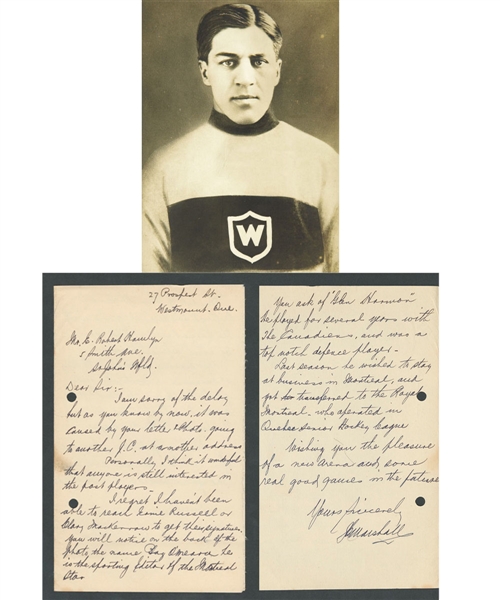 W
27 Prospect St.
Westmount. Que.
Mr. E. Robert Hamlyn
5 Smith Ave.
St John's Nfld.
Dear Sir:-
I am sorry of the delay
but as you know by now, it was
caused by your letter & Photo. going
to another J.C. at another address
Personally, I think it wonderful
that anyone is still interested in
the past players.
I regret I haven't been
able to reach Ernie Russell or
Billy Mackerrow to get their signatures.
You will notice on the back of the
Photo, the name Baz O'Meara he
is the sporting Editor of the Montreal
Star.
You ask of "Glen Harmon"
he played for several years with
The Canadiens, and was a
top notch defence player.
Last season he wished to stay
at business in Montreal, and
got transferred to the Royals
Montreal, who operated in
Quebec Senior Hockey League
Wishing you the pleasure
of a new Arena and some
real good games in the future
Yours Sincerely
J Marshall